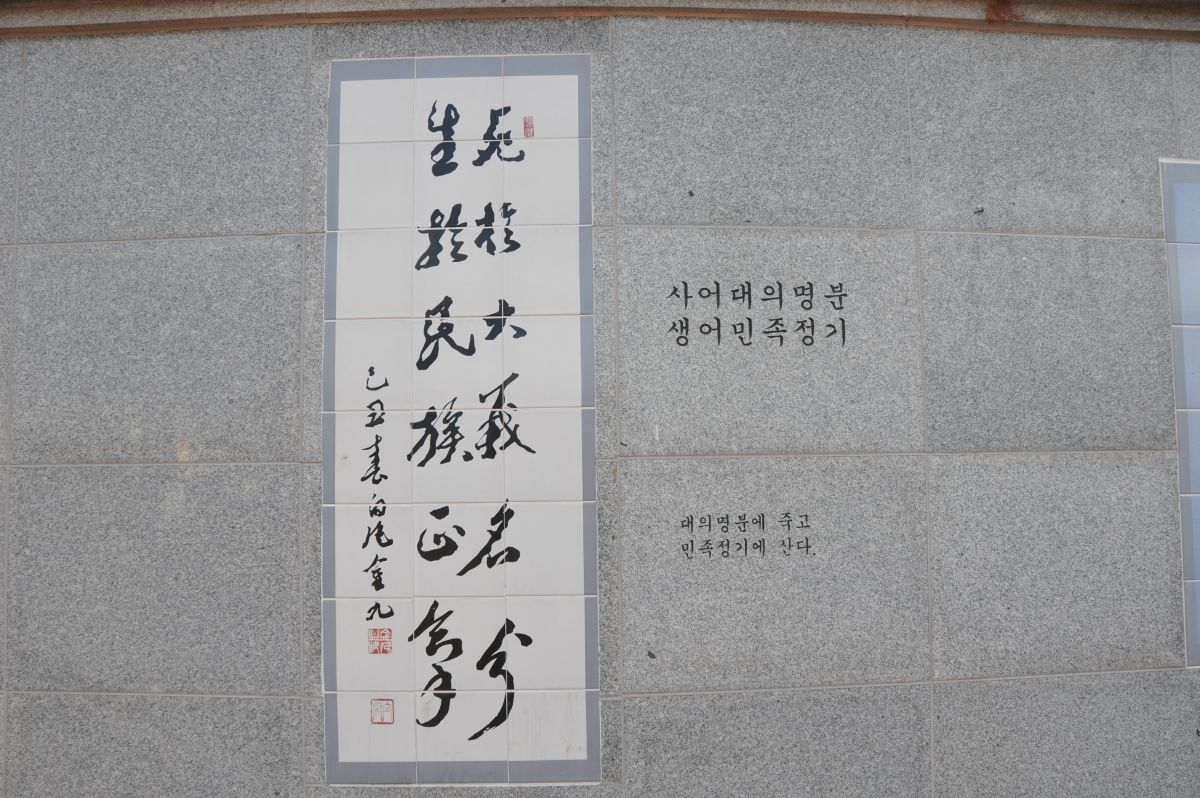 死於大義名分
生於民族正氣
己丑春白凡金九
사어대의명분
생어민족정기
대의명분에 죽고
민족정기에 산다.